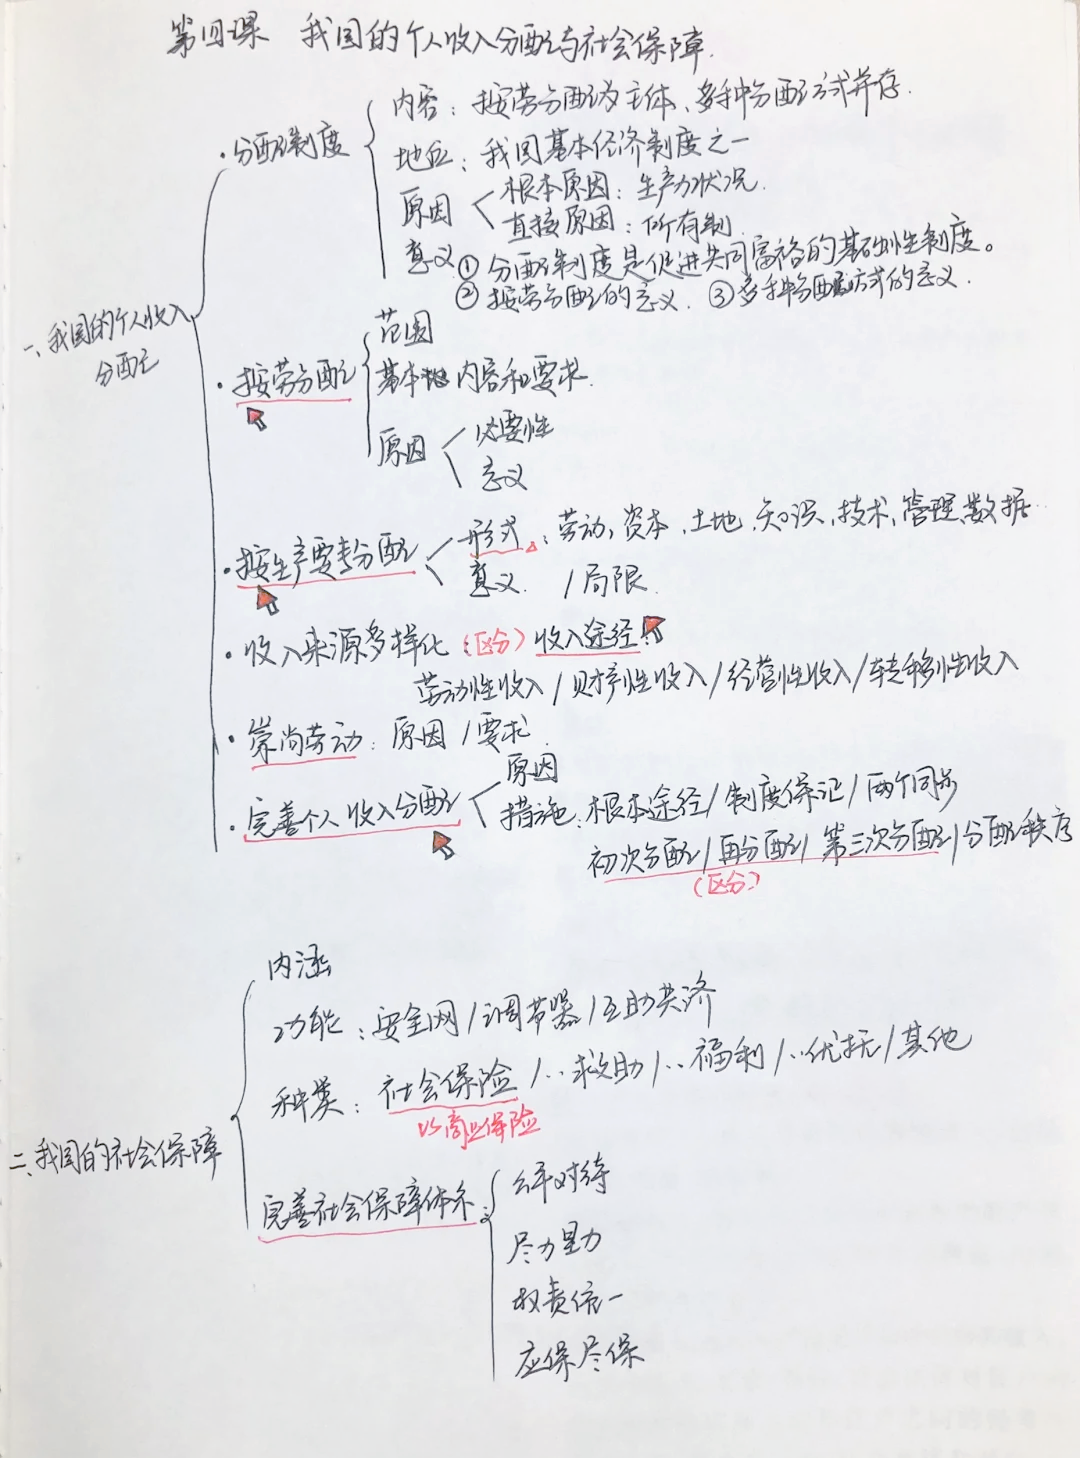 第四课 我国的个人收入分配与社会保障.
一、我国的个人收入分配
·分配制度
内容：按劳分配为主体、多种分配方式并存.
地位：我国基本经济制度之一
原因
根本原因：生产力状况.
直接原因：所有制.
意义①分配制度是促进共同富裕的基础性制度。
②按劳分配的意义. ③多种分配方式的意义.
·按劳分配
范围
基本内容和要求.
原因
必要性
意义
·按生产要素分配
形式：劳动,资本,土地,知识,技术,管理,数据..
意义. /局限.
·收入来源多样化 (区分) 收入途径：
劳动性收入/财产性收入/经营性收入/转移性收入
·崇尚劳动：原因/要求.
·完善个人收入分配
原因
措施：根本途径/制度保证/两个同步
初次分配/再分配/第三次分配/分配秩序
(区分)
二、我国的社会保障
内涵
功能：安全网/调节器/互助共济
种类：社会保险/··救助/··福利/··优抚/其他
VS商业保险
完善社会保障体系：
公平对待
尽力量力
权责统一
应保尽保